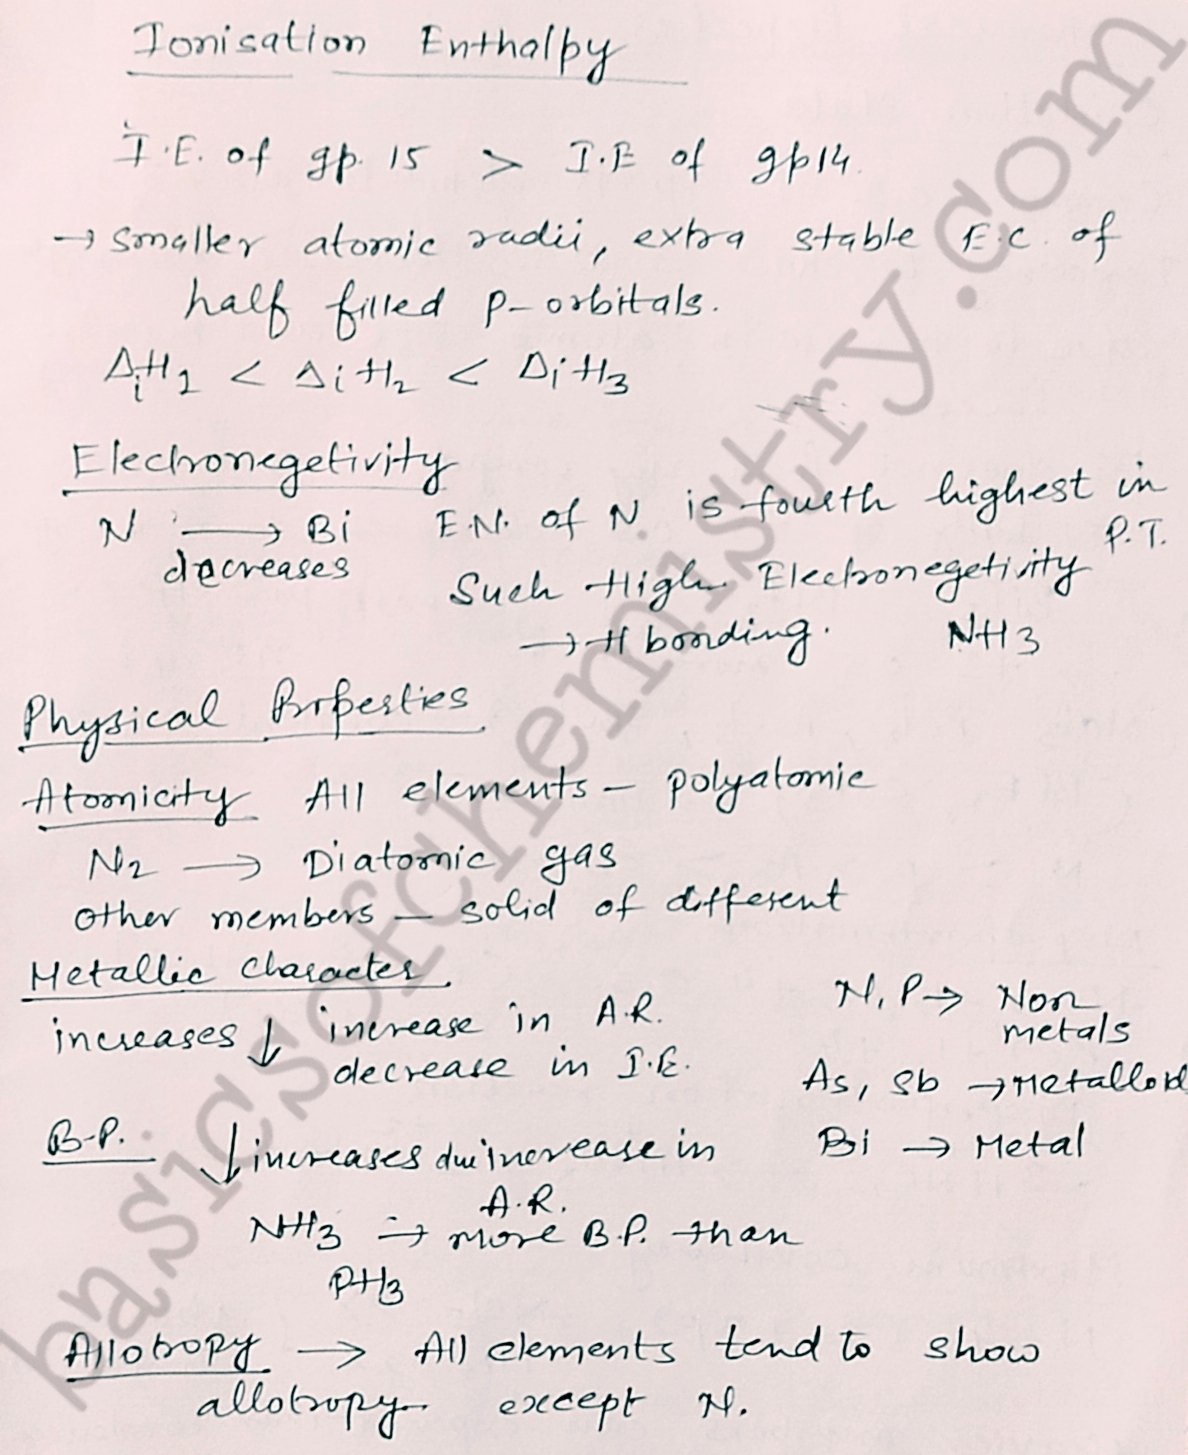 Ionisation Enthalpy
I.E. of gp. 15 > I.E of gp14.
→ smaller atomic radii, extra stable E.C. of
half filled p-orbitals.
ΔiH1 < ΔiH2 < ΔiH3
Electronegetivity
N → Bi
decreases
E.N. of N is fourth highest in
P.T.
Such High Electronegetivity
→ H bonding. NH3
Physical Properties
Atomicity All elements - polyatomic
N2 → Diatomic gas
Other members - solid of different
Metallic Character
increases ↓ increase in A.R.
decrease in I.E.
N, P → Non
metals
As, Sb → Metalloid
Bi → Metal
B.P. ↓ increases due increase in
A.R.
NH3 → more B.P. than
PH3
Allotropy → All elements tend to show
allotropy except N.
basicsofchemistry.com